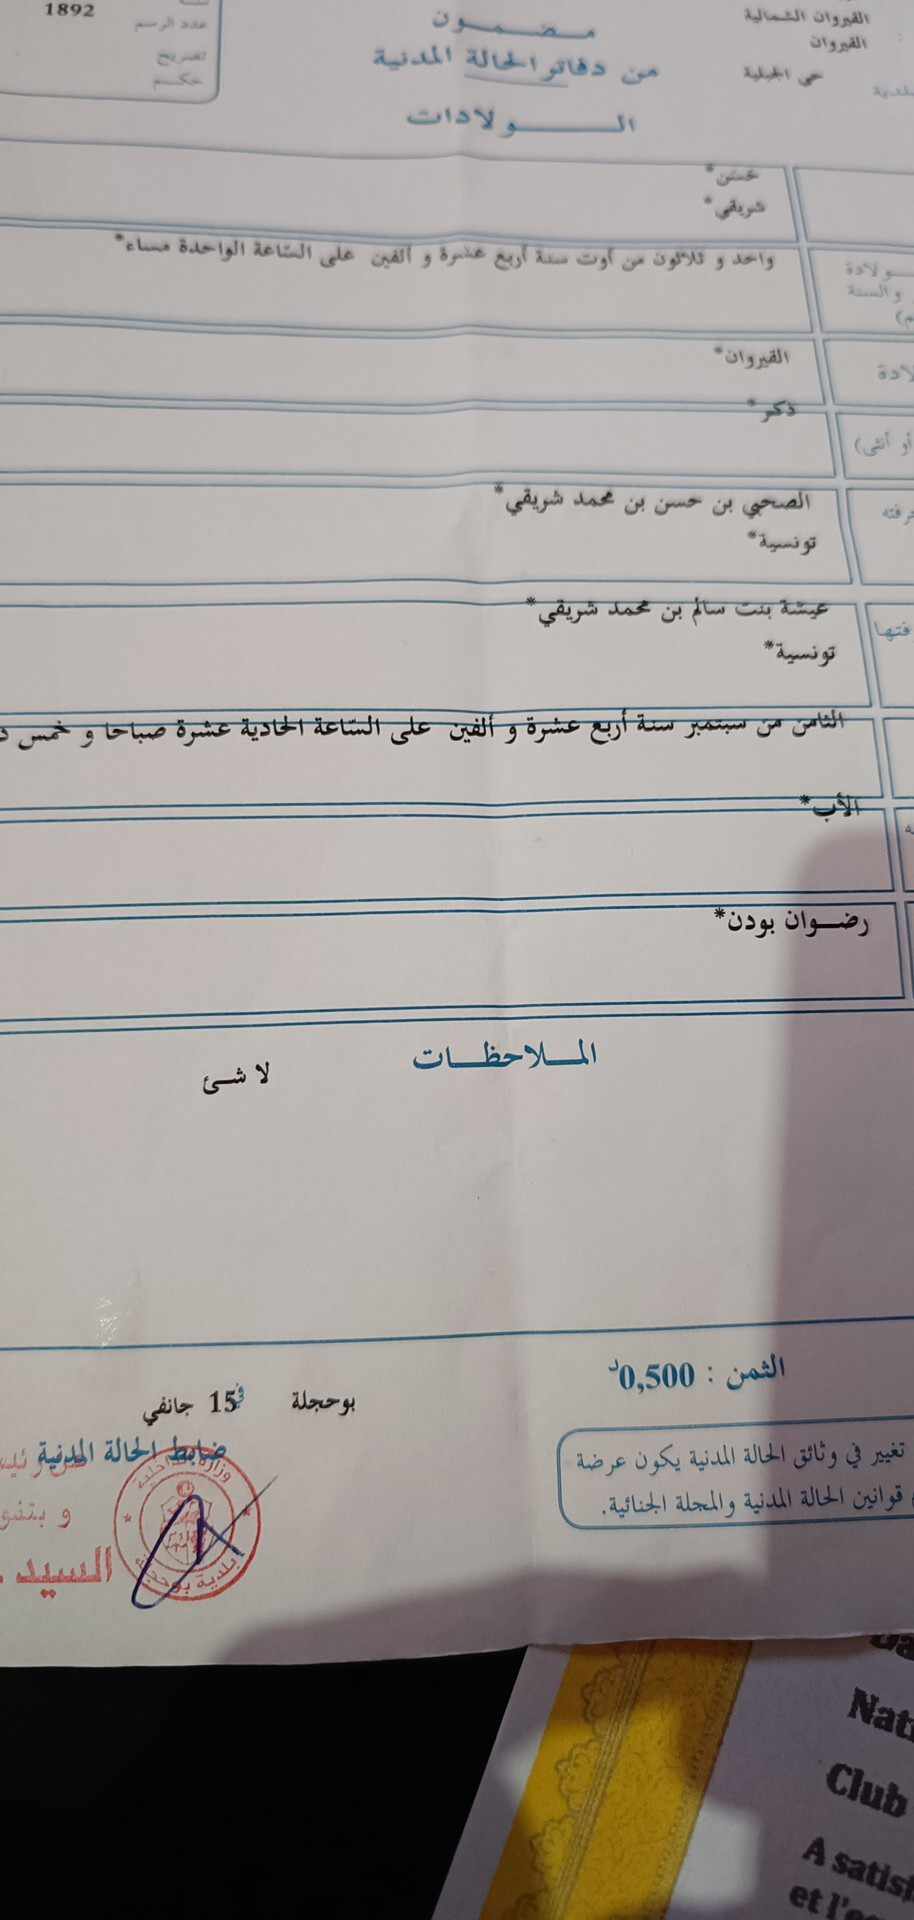 1892
عدد الرسم
تصريح
حكم
القيروان الشمالية
القيروان
حي الجبلية
مضمون
من دفاتر الحالة المدنية
الولادات
حسن*
شريقي*
واحد و ثلاثون من أوت سنة أربع عشرة و ألفين على السّاعة الواحدة مساء*
ولادة
والسنة
القيروان*
لادة
ذكر*
أو أنثى)
الصحبي بن حسن بن محمد شريقي*
حرفته
تونسية*
عيشة بنت سالم بن محمد شريقي*
فتها
تونسية*
الثامن من سبتمبر سنة أربع عشرة و ألفين على السّاعة الحادية عشرة صباحا و خمس د
الأب*
رضوان بودن*
الملاحظات
لا شئ
الثمن : 0,500د
بوحجلة في 15 جانفي
ضابط الحالة المدنية
وزارة الداخلية
بلدية بوحجلة
السيد
تغيير في وثائق الحالة المدنية يكون عرضة
قوانين الحالة المدنية والمجلة الجنائية.
Nat
Club
A satis
et l'e